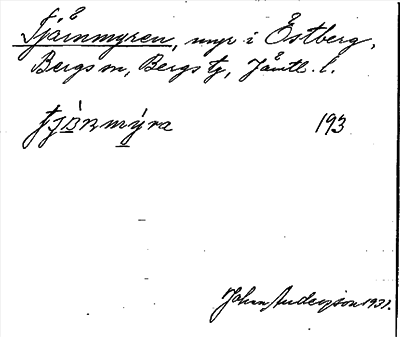 Tjärnmyren, myr i Östberg,
Bergs sn, Bergs tg, Jämtl. l.
193
Johan Anderson 1931.